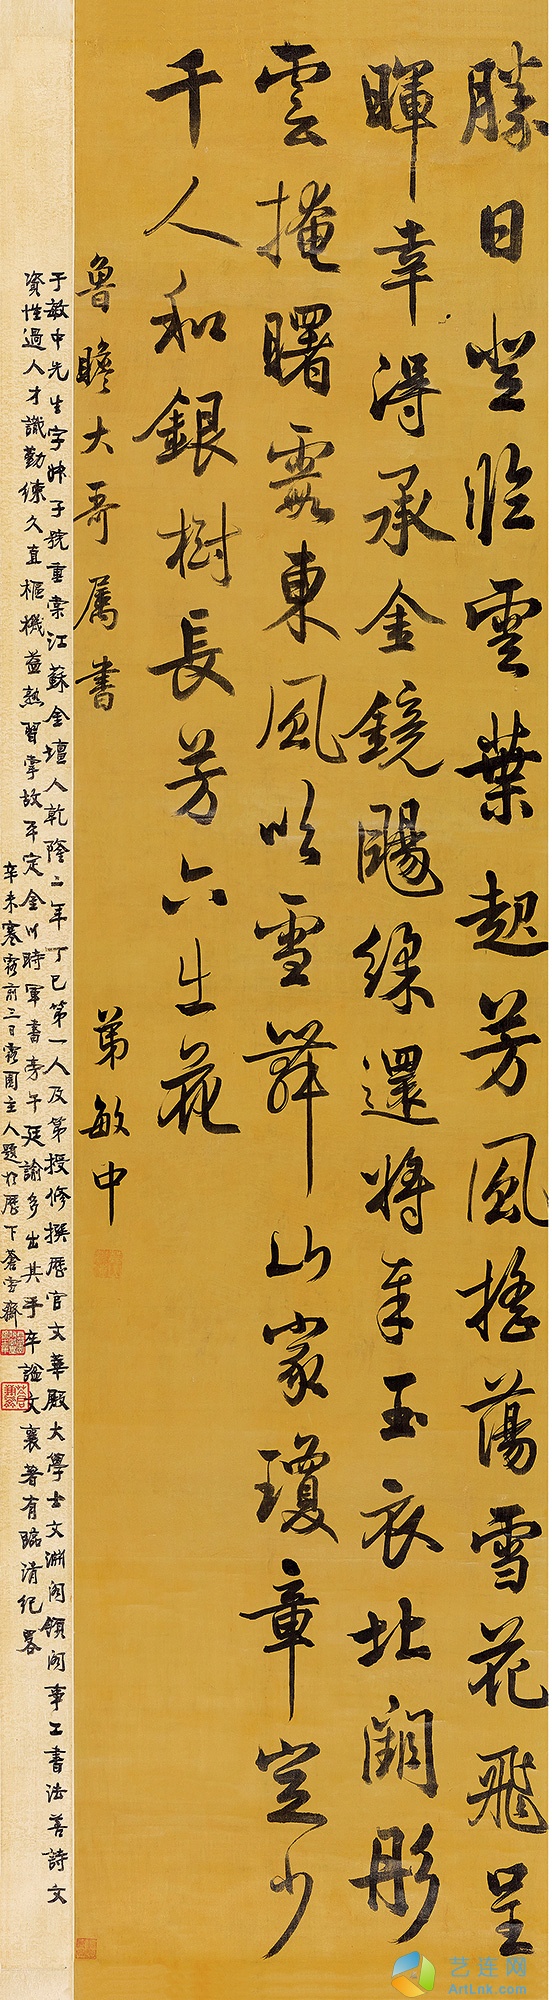 勝日登臨雲葉起芳風搖蕩雪花飛呈
暉幸得承金鏡颺綵還將奉玉衣北闕彤
雲掩曙霞東風吹雪舞山家瓊章定少
千人和銀樹長芳六出花
魯瞻大哥屬書
弟敏中
于敏中先生字子號重棠江蘇金壇人乾隆二年丁巳第一人及第授修撰歷官文華殿大學士文淵閣領閣事工書法善詩文
資性過人才識勤練久直樞機益熟習掌故平定金川時軍書旁午廷諭多出其手卒謚文襄著有臨清紀畧
辛未寒露前三日霞園主人題於歷下蒼雪齋
艺连网
ArtLnk.com